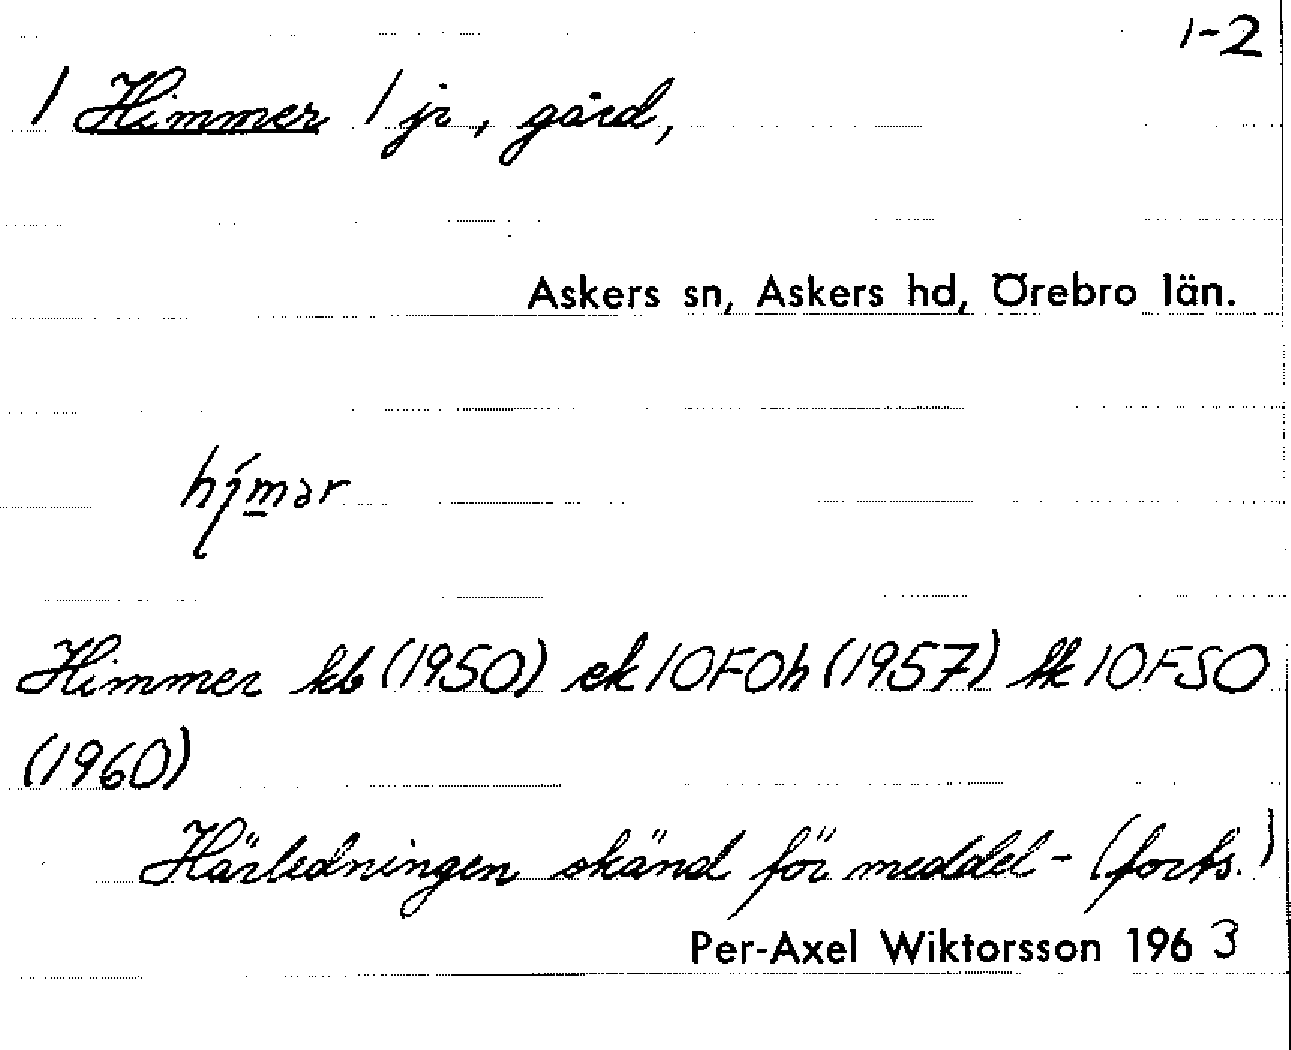 1-2
/ Himmer / jr, gård,
Askers sn, Askers hd, Örebro län.
Himmer kb (1950) ek 10F0h (1957) tk 10FSO
(1960)
Härledningen okänd för meddel- (forts.)
Per-Axel Wiktorsson 1963